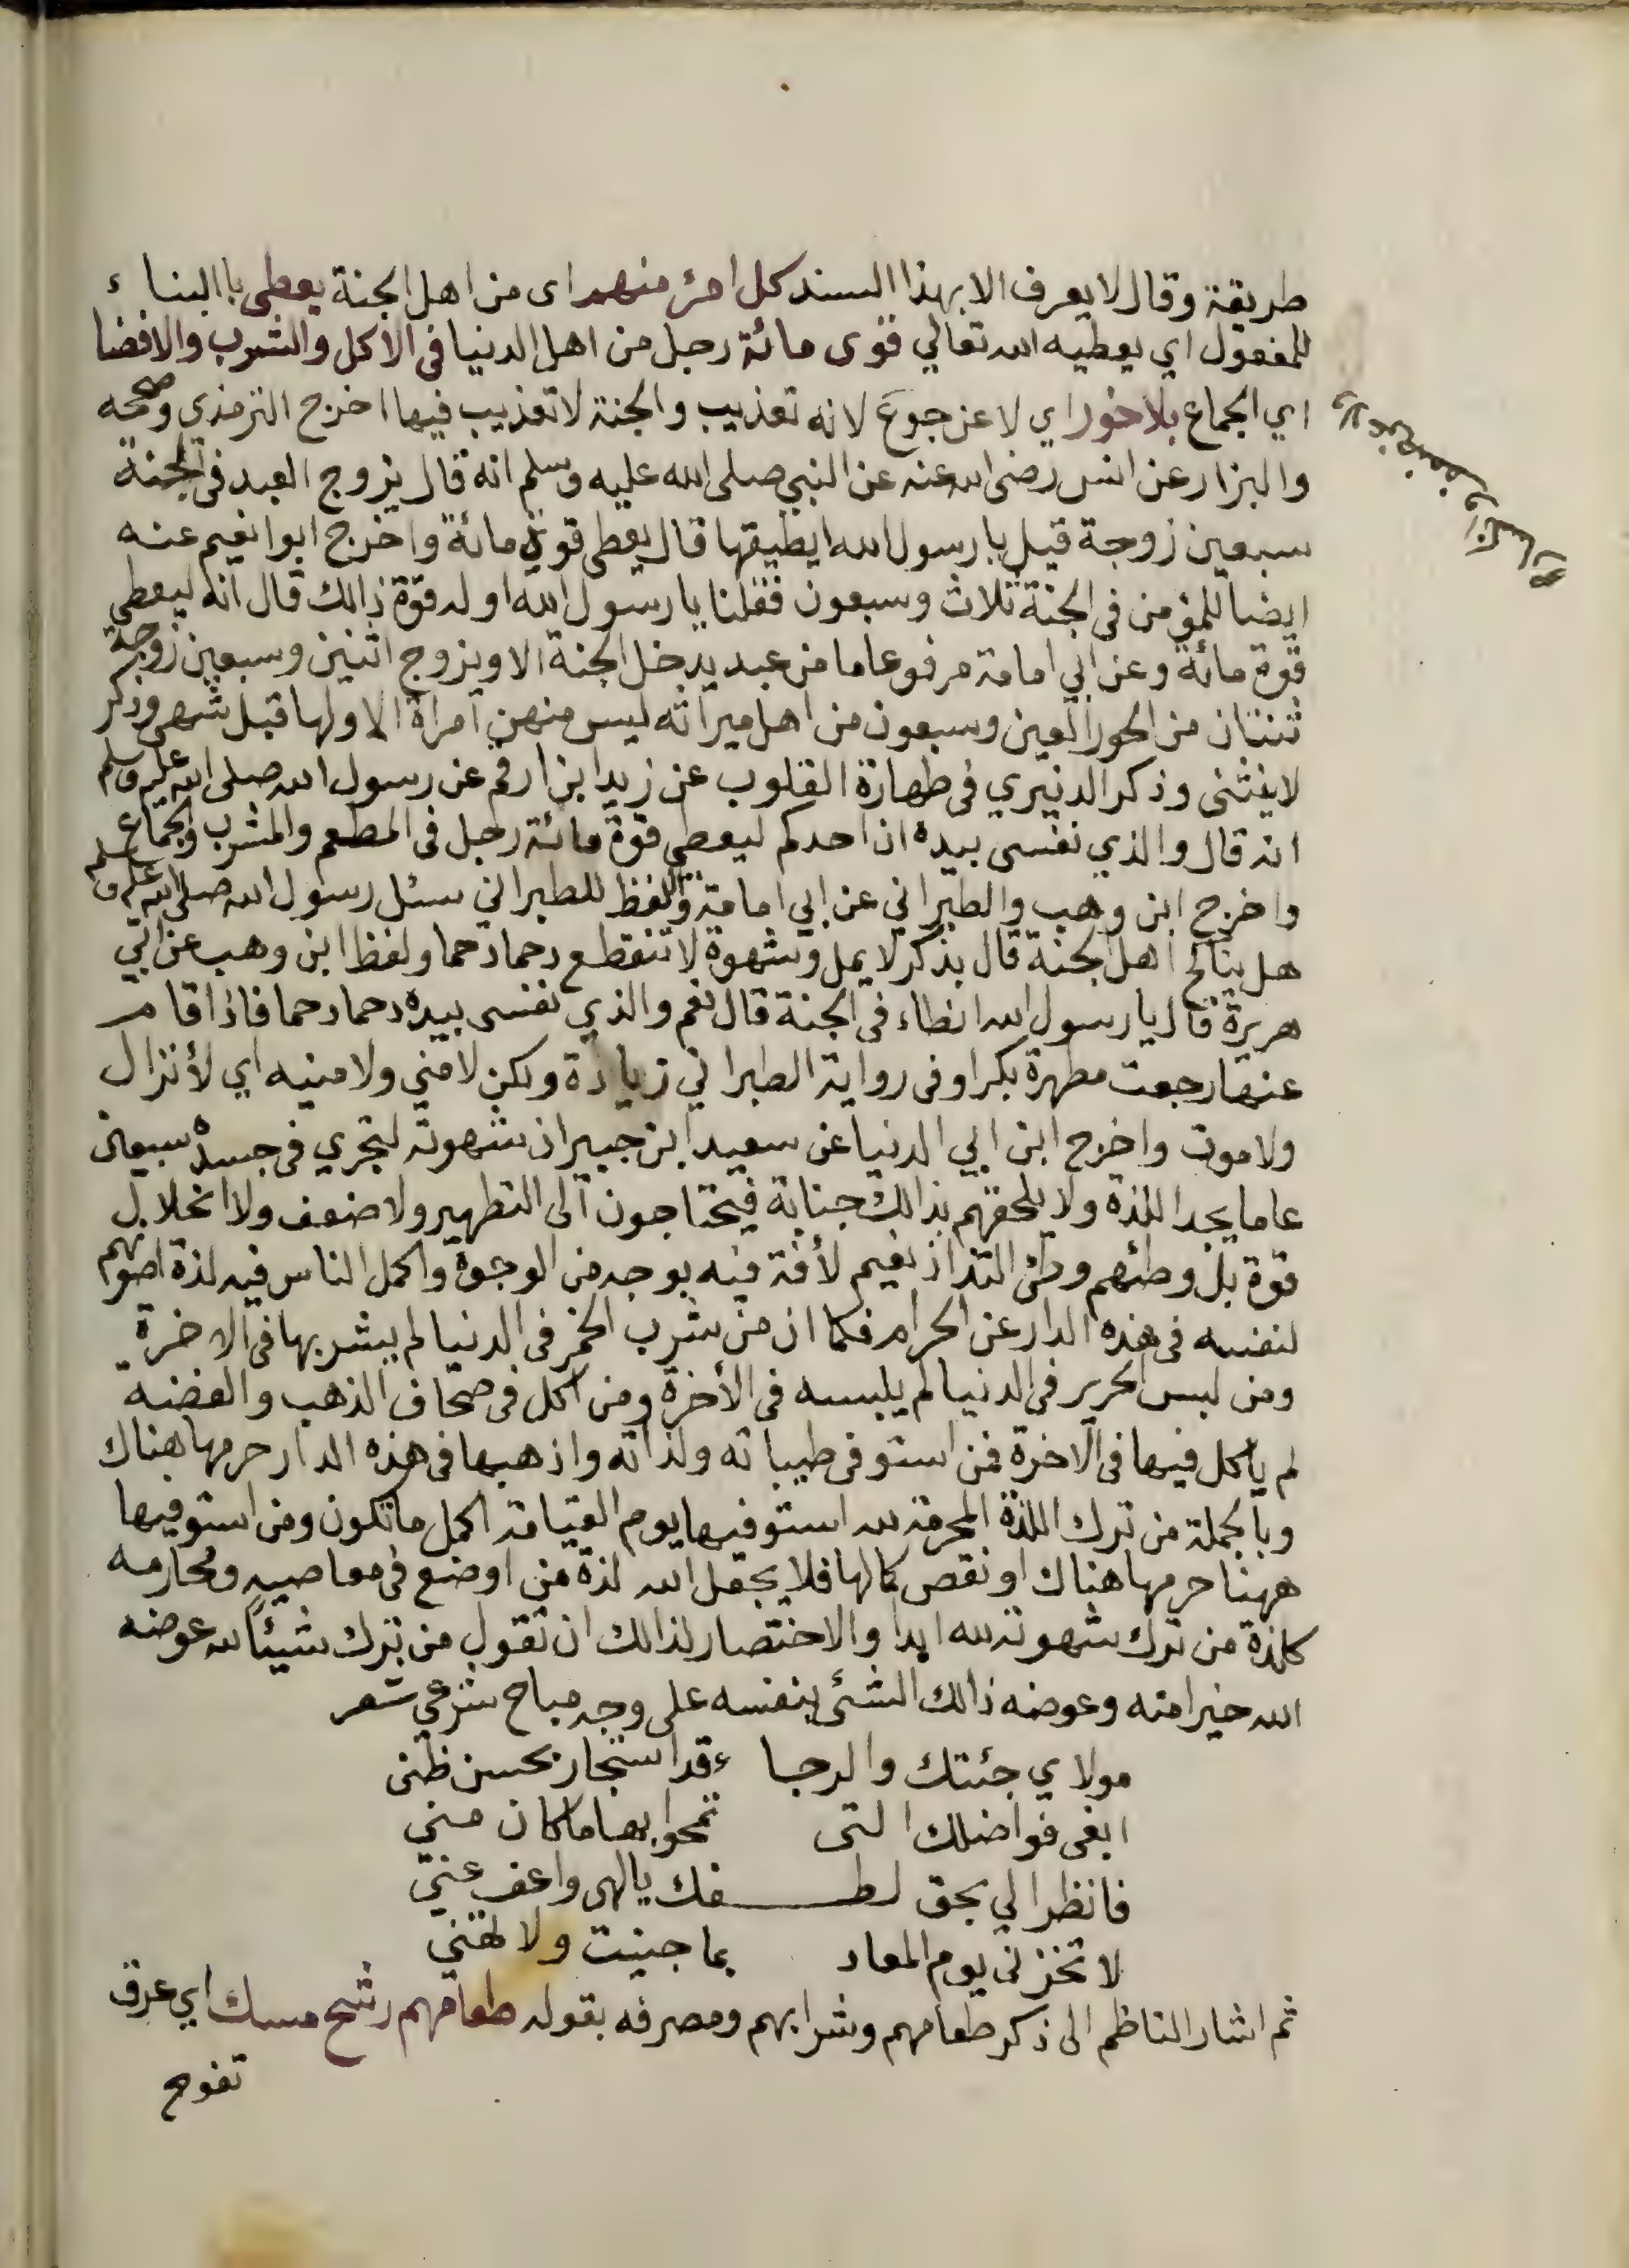 طريقة وقال لا يعرف الا بهذا السند كل امرئ منهم اى من اهل الجنة يعطى باالبناء
للمفعول اي يعطيه الله تعالي قوى مائة رجل من اهل الدنيا فى الاكل والشرب والافضا
اي الجماع بلا خور اي لا عن جوع لانه تعذيب والجنة لا تعذيب فيها اخرج الترمذي وصححه
والبزار عن انس رضى الله عنه عن النبي صلى الله عليه وسلم انه قال يزوج العبد فى الجنة
سبعين زوجة قيل يا رسول الله ايطيقها قال يعطى قوة مائة واخرج ابوا نعيم عنه
ايضا للمؤمن فى الجنة ثلاث وسبعون فقلنا يا رسول الله اوله قوة ذالك قال انه ليعطي
قوة مائة وعن ابي امامة مرفوعا ما من عبد يدخل الجنة الا ويزوج اثنين وسبعين زوجة
ثنتان من الحور العين وسبعون من اهل ميراثه ليس منهن امراة الا ولها قبل شهي وذكر
لاينثنى وذكر الدنيري فى طهارة القلوب عن زيد ابن ارقم عن رسول الله صلى الله عليه وسلم
انه قال والذي نفسى بيده ان احدكم ليعطي قوة مائة رجل فى المطعم والمشرب والجماع
واخرج ابن وهب والطبراني عن ابي امامة والفظ للطبراني سئل رسول الله صلى الله عليه وسلم
هل يناكح اهل الجنة قال بذكر لا يمل وشهوة لا تنقطع دحما دحما ولفظ ابن وهب عن ابي
هريرة قال يا رسول الله انطاء فى الجنة قال نعم والذي نفسى بيده دحما دحما فاذا قام
عنها رجعت مطهرة بكرا وفى رواية الطبراني زيادة ولكن لا مني ولا منيه اي لأنزال
ولا موت واخرج ابن ابي الدنيا عن سعيد ابن جبير ان شهوته لتجري فى جسده سبعين
عاما يجد اللذة ولا يلحقهم بذالك جنابة فيحتاجون الى التطهير ولا ضعف ولا انحلال
قوة بل وطئهم وطئ التذاذ نعيم لأفة فيه بوجه من الوجوه واكمل الناس فيه لذة اصونهم
لنفسه فى هذه الدار عن الحرام فكما ان من شرب الخمر فى الدنيا لم يشربها فى الاخرة
ومن لبس الحرير فى الدنيا لم يلبسه فى الأخرة ومن اكل فى صحاف الذهب والفضة
لم ياكل فيها فى الاخرة فمن استوفى طيباته ولذاته واذهبها فى هذه الدار حرمها هناك
وبالجملة من ترك اللذة المحرمة لله استوفيها يوم القيامة اكمل ما تكون ومن استوفيها
ههنا حرمها هناك او نقص كمالها فلا يجعل الله لذة من اوضع فى معاصيه ومحارمه
كلذة من ترك شهوته لله ابدا والاختصار لذالك ان تقول من ترك شيئاً لله عوضه
الله خيرا منه وعوضه ذالك الشئ بنفسه على وجه مباح شرعي شعر
مولاي جئتك والرجا ء قد استجار بحسن ظنى
ابغى فواضلك التى تمحوا بها ما كان مني
فانظر الي بحق لطـفك يالهى واعف عني
لا تخزنى يوم المعاد بما جنيت ولا تهني
ثم اشار الناظم الى ذكر طعامهم وشرابهم ومصرفه بقوله طعامهم رشح مسك اي عرق
تفوح